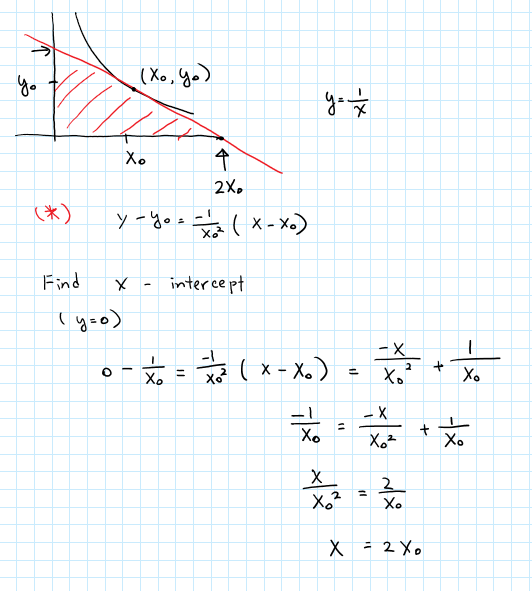 (x₀, y₀)
y₀
y = 1/x
x₀
2x₀
(*) y - y₀ = -1/x₀² (x - x₀)
Find x - intercept
(y=0)
0 - 1/x₀ = -1/x₀² (x - x₀) = -x/x₀² + 1/x₀
-1/x₀ = -x/x₀² + 1/x₀
x/x₀² = 2/x₀
x = 2x₀